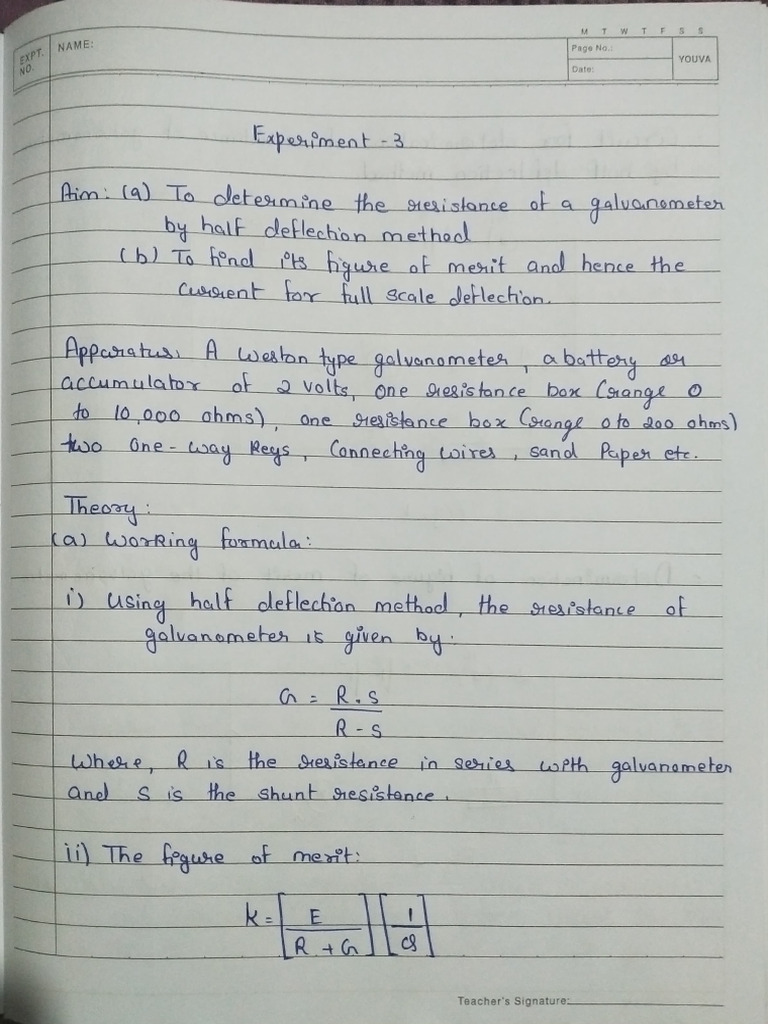 M T W T F S S
EXPT. NO.
NAME:
Page No.:
Date:
YOUVA
Experiment - 3
Aim: (a) To determine the resistance of a galvanometer
by half deflection method
(b) To find its figure of merit and hence the
current for full scale deflection.
Apparatus: A weston type galvanometer, a battery or
accumulator of 2 volts, one resistance box (range 0
to 10,000 ohms), one resistance box (range 0 to 200 ohms)
two one-way keys, connecting wires, sand paper etc.
Theory:
(a) working formula:
i) using half deflection method, the resistance of
galvanometer is given by:
G = R.S / R - S
Where, R is the resistance in series with galvanometer
and S is the shunt resistance.
ii) The figure of merit:
k = [E / R + G] [1 / θ]
Teacher's Signature: